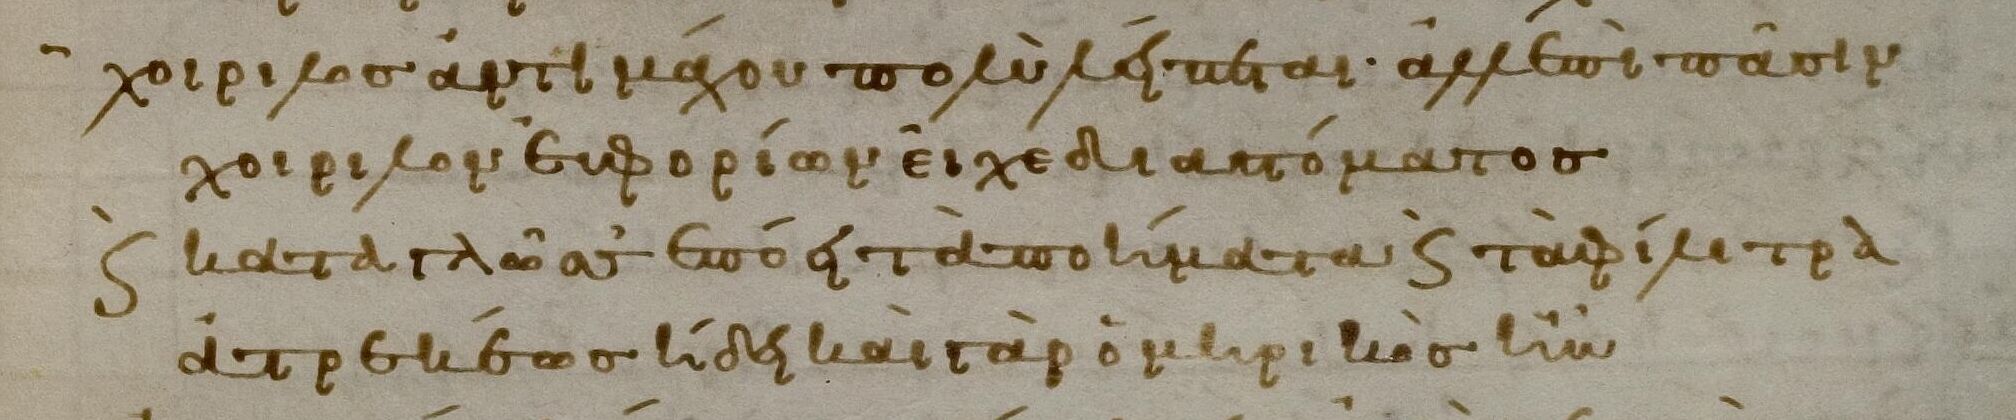 χοιρίλοσ ἀντιμάχου πολὺ λείπεται· ἀλλ' ἐπὶ πᾶσιν
χοιρίλον ἐυφορίων εἶχε διαστόματοσ
ϛ κατάγλωσσ' ἐπόει τὰ ποιήματα ϛ τὰ φιλιτρὰ
ἀτρεκέωσ ἤδει καὶ γὰρ ὁμηρικὸσ ἦν